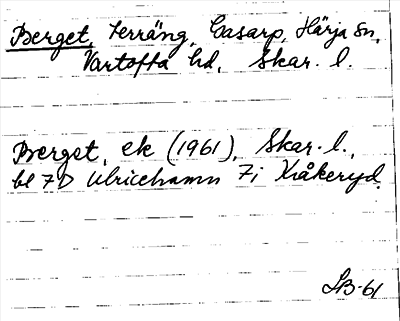 Berget, terräng, Casarp, Härja sn,
Vartofta hd, Skar. l.
Berget, ek (1961), Skar. l.,
bl 7D Ulricehamn 7i Kråkeryd.
SB-61